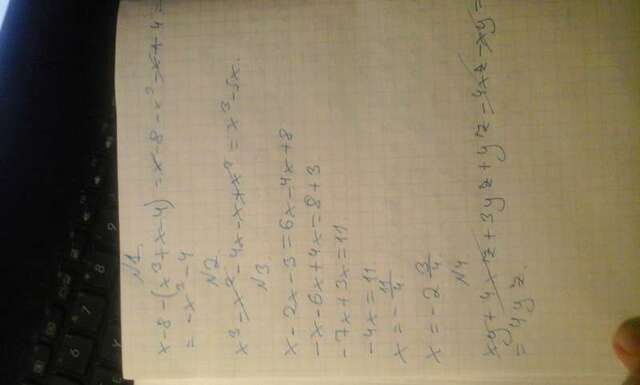 N1.
x-8-(x³+x-4)=x-8-x³-x+4=
=-x³-4
N2.
x³-x²-4x-x+x²=x³-5x.
N3
x-2x-3=6x-4x+8
-x-6x+4x=8+3
-7x+3x=11
-4x=11
x=-11/4
x=-2 3/4
N4
xy+4xz+3yz+yz-4xz-xy=
=4yz.